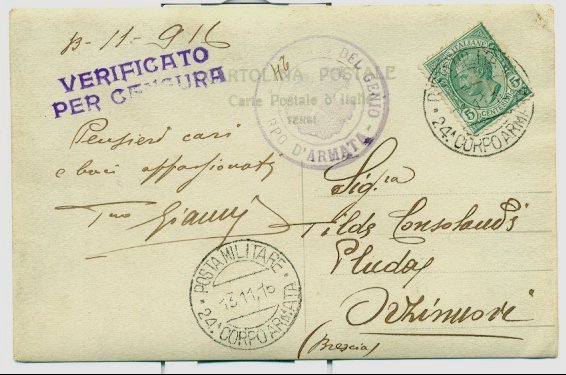 13-11-916
VERIFICATO
PER CENSURA
CARTOLINA POSTALE
Carte Postale d'Italie
DEL GENIO
CORPO D'ARMATA
POSTE ITALIANE
CENTESIMI 5
24ª CORPO ARMATA
Pensieri cari
e baci appassionati
Tuo Gianni
Sig.ra
Tilde Consolandi
Pludax
Orzinuovi
(Brescia)
POSTA MILITARE
13.11.16
24ª CORPO ARMATA